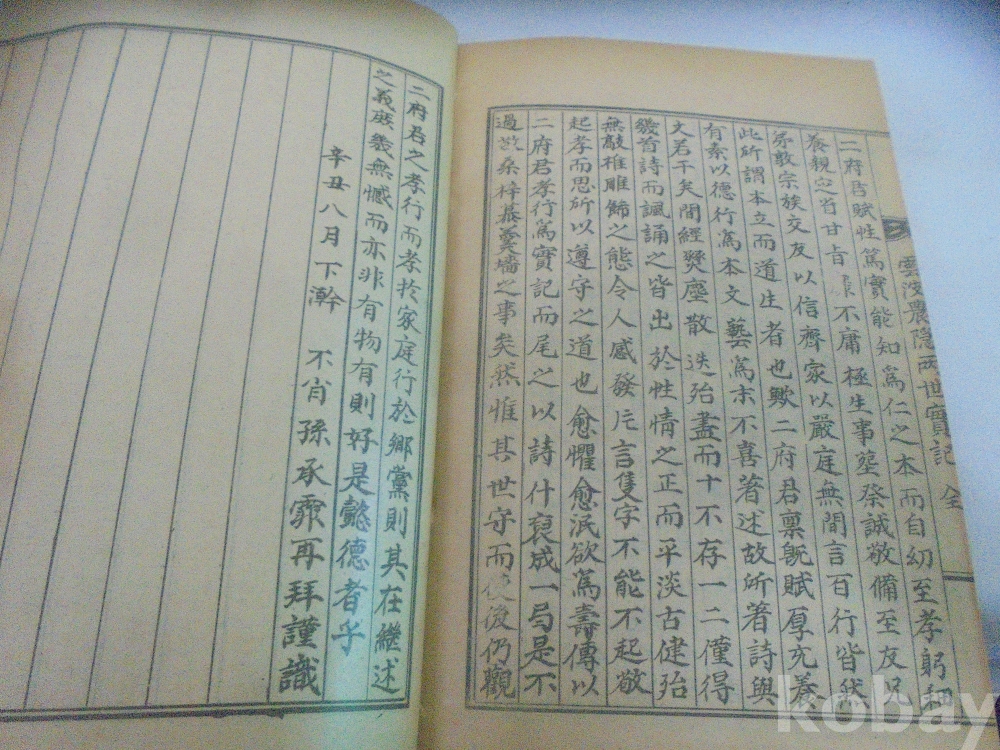 雲溪農隱兩世實記 全
二府君賦性篤實能知爲仁之本而自幼至孝躬耕
養親之旨甘旨 不庸極生事葬祭誠敬備至友
弟敦宗族交友以信齊家以嚴庭無間言百行皆然
此所謂本立而道生者也歟二府君禀旣賦厚充養
有素以德行爲本文藝爲末不喜著述故所著詩與
文若干矣間經燹塵散迭殆盡而十不存一二僅得
幾首詩而諷誦之皆出於性情之正而平淡古健殆
無敲椎雕飾之態令人感發片言隻字不能不起敬
起孝而思所以遵守之道也愈懼愈泯欲爲壽傳以
二府君孝行篤實記而尾之以詩什裒成一局是不
過故桑梓慕羹墻之事矣然惟其世守而使後仍觀
二府君之孝行而孝於家庭行於鄉黨則其在繼述
之義庶幾無憾而亦非有物有則好是懿德者乎
辛丑八月下澣 不肖孫承霏再拜謹識
kobay